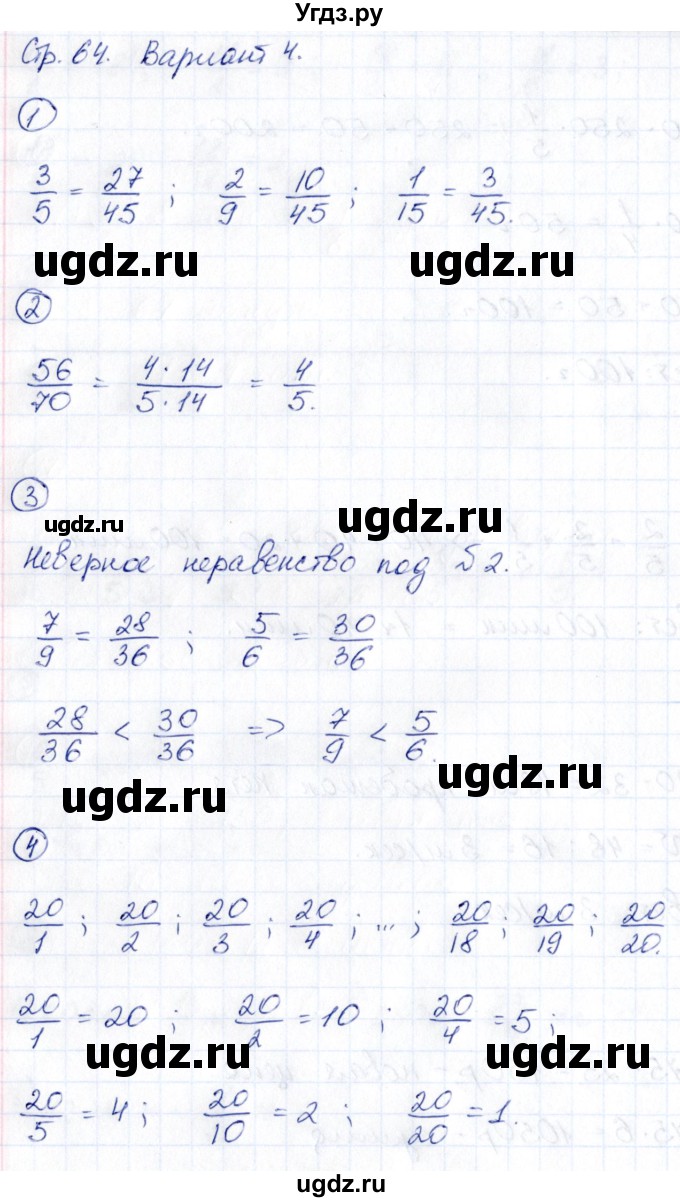 Угдз.ру
Стр. 64. Вариант 4.
1
3/5 = 27/45 ; 2/9 = 10/45 ; 1/15 = 3/45.
ugdz.ru ugdz.ru
2
56/70 = 4·14/5·14 = 4/5.
3
ugdz.ru ugdz.ru
Неверное неравенство под б 2.
7/9 = 28/36 ; 5/6 = 30/36
ugdz.ru
28/36 < 30/36 => 7/9 < 5/6.
ugdz.ru ugdz.ru
4
20/1 ; 20/2 ; 20/3 ; 20/4 ; ... ; 20/18 ; 20/19 ; 20/20.
20/1 = 20 ; 20/2 = 10 ; 20/4 = 5 ;
ugdz.ru ugdz.ru
20/5 = 4 ; 20/10 = 2 ; 20/20 = 1.
ugdz.ru